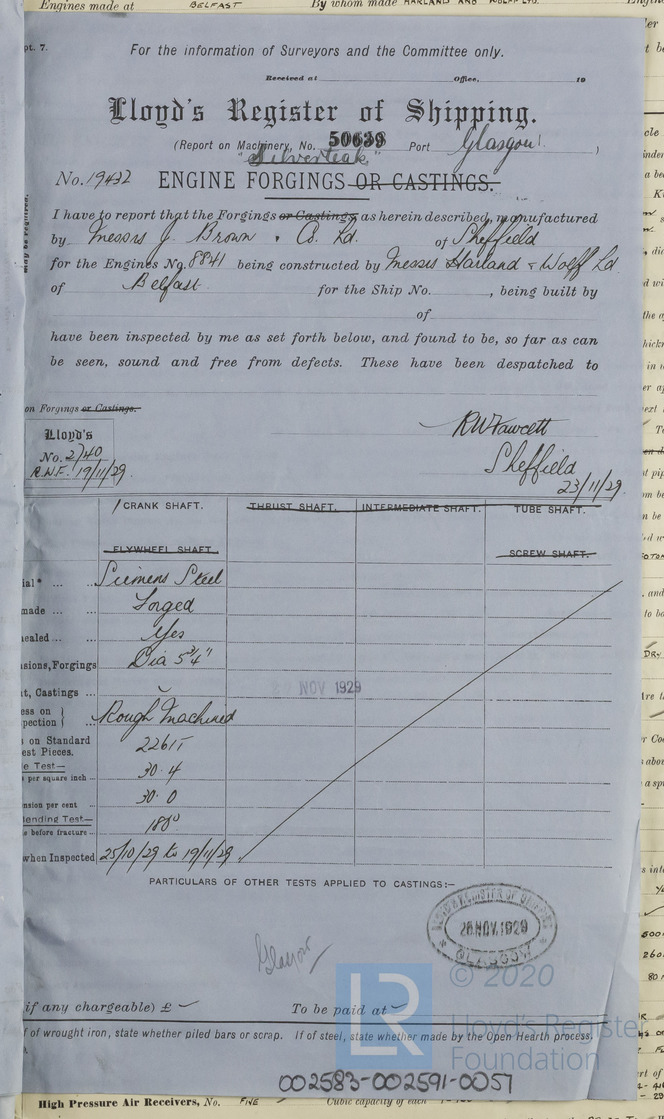 Engines made at BELFAST By whom made HARLAND AND WOLFF LTD.
pt. 7.
For the information of Surveyors and the Committee only.
Received at Office, 19
Lloyd's Register of Shipping.
(Report on Machinery, No. 50639 Port Glasgow)
"Silverteak"
No. 19432 ENGINE FORGINGS OR CASTINGS.
I have to report that the Forgings or Castings, as herein described, manufactured
by Messrs J. Brown & Co. Ld. of Sheffield
for the Engines No. 8841 being constructed by Messrs Harland & Wolff Ld.
of Belfast for the Ship No. , being built by
of
have been inspected by me as set forth below, and found to be, so far as can
be seen, sound and free from defects. These have been despatched to
on Forgings or Castings.
Lloyd's
No. 2740
R.W.F. 19/11/29.
RW Fawcett
Sheffield
23/11/29.
1 CRANK SHAFT. THRUST SHAFT. INTERMEDIATE SHAFT. TUBE SHAFT.
FLYWHEEL SHAFT. SCREW SHAFT.
ial* ... ... Siemens Steel
made ... ... Forged
ealed ... ... Yes
sions, Forgings Dia 5¾"
t, Castings ...
NOV 1929
ess on
pection Rough Machined
s on Standard
est Pieces. 2261T
e Test—
per square inch ... 30.4
nsion per cent ... 30.0
Bending Test—
e before fracture ... 180°
when Inspected 25/10/29 to 19/11/29
PARTICULARS OF OTHER TESTS APPLIED TO CASTINGS:—
LLOYD'S REGISTER OF SHIPPING
28.NOV.1929
GLASGOW
Glasgow
© 2020
LR
Lloyd's Register
Foundation
if any chargeable) £ To be paid at
f of wrought iron, state whether piled bars or scrap. If of steel, state whether made by the Open Hearth process.
002583-002591-0051
High Pressure Air Receivers, No. FIVE Cubic capacity of each